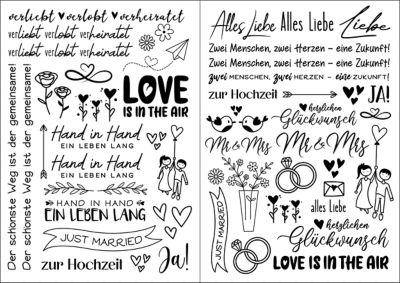 verliebt verlobt verheiratet
verliebt verlobt verheiratet
verliebt verlobt verheiratet
Der schönste Weg ist der gemeinsame!
Der schönste Weg ist der gemeinsame!
LOVE
IS IN THE AIR
Hand in Hand
EIN LEBEN LANG
Hand in Hand
EIN LEBEN LANG
HAND IN HAND
EIN LEBEN LANG
JUST MARRIED
zur Hochzeit
Ja!
Alles Liebe Alles Liebe Liebe
Zwei Menschen, zwei Herzen - eine Zukunft!
Zwei Menschen, zwei Herzen - eine Zukunft!
zwei MENSCHEN, zwei HERZEN - eine ZUKUNFT!
zur Hochzeit
JA!
herzlichen
Glückwunsch
Mr & Mrs
Mr & Mrs
JUST MARRIED
alles Liebe
herzlichen
Glückwunsch
LOVE IS IN THE AIR